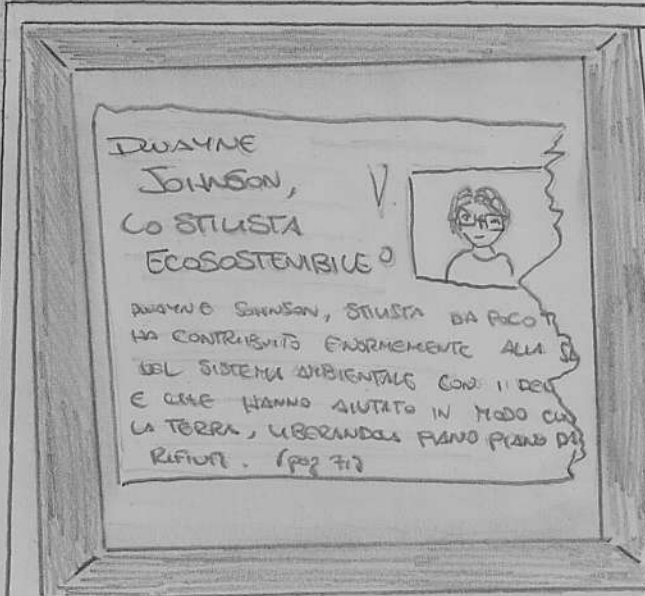 DWAYNE
JOHNSON,
LO STILISTA
ECOSOSTENIBILE
V.
DWAYNE JOHNSON, STILISTA DA POCO
HA CONTRIBUITO ENORMEMENTE ALLA
DEL SISTEMA AMBIENTALE CON I
E CHE HANNO AIUTATO IN MODO
LA TERRA, LIBERANDOLA PIANO PIANO
RIFIUTI. (pag 71)